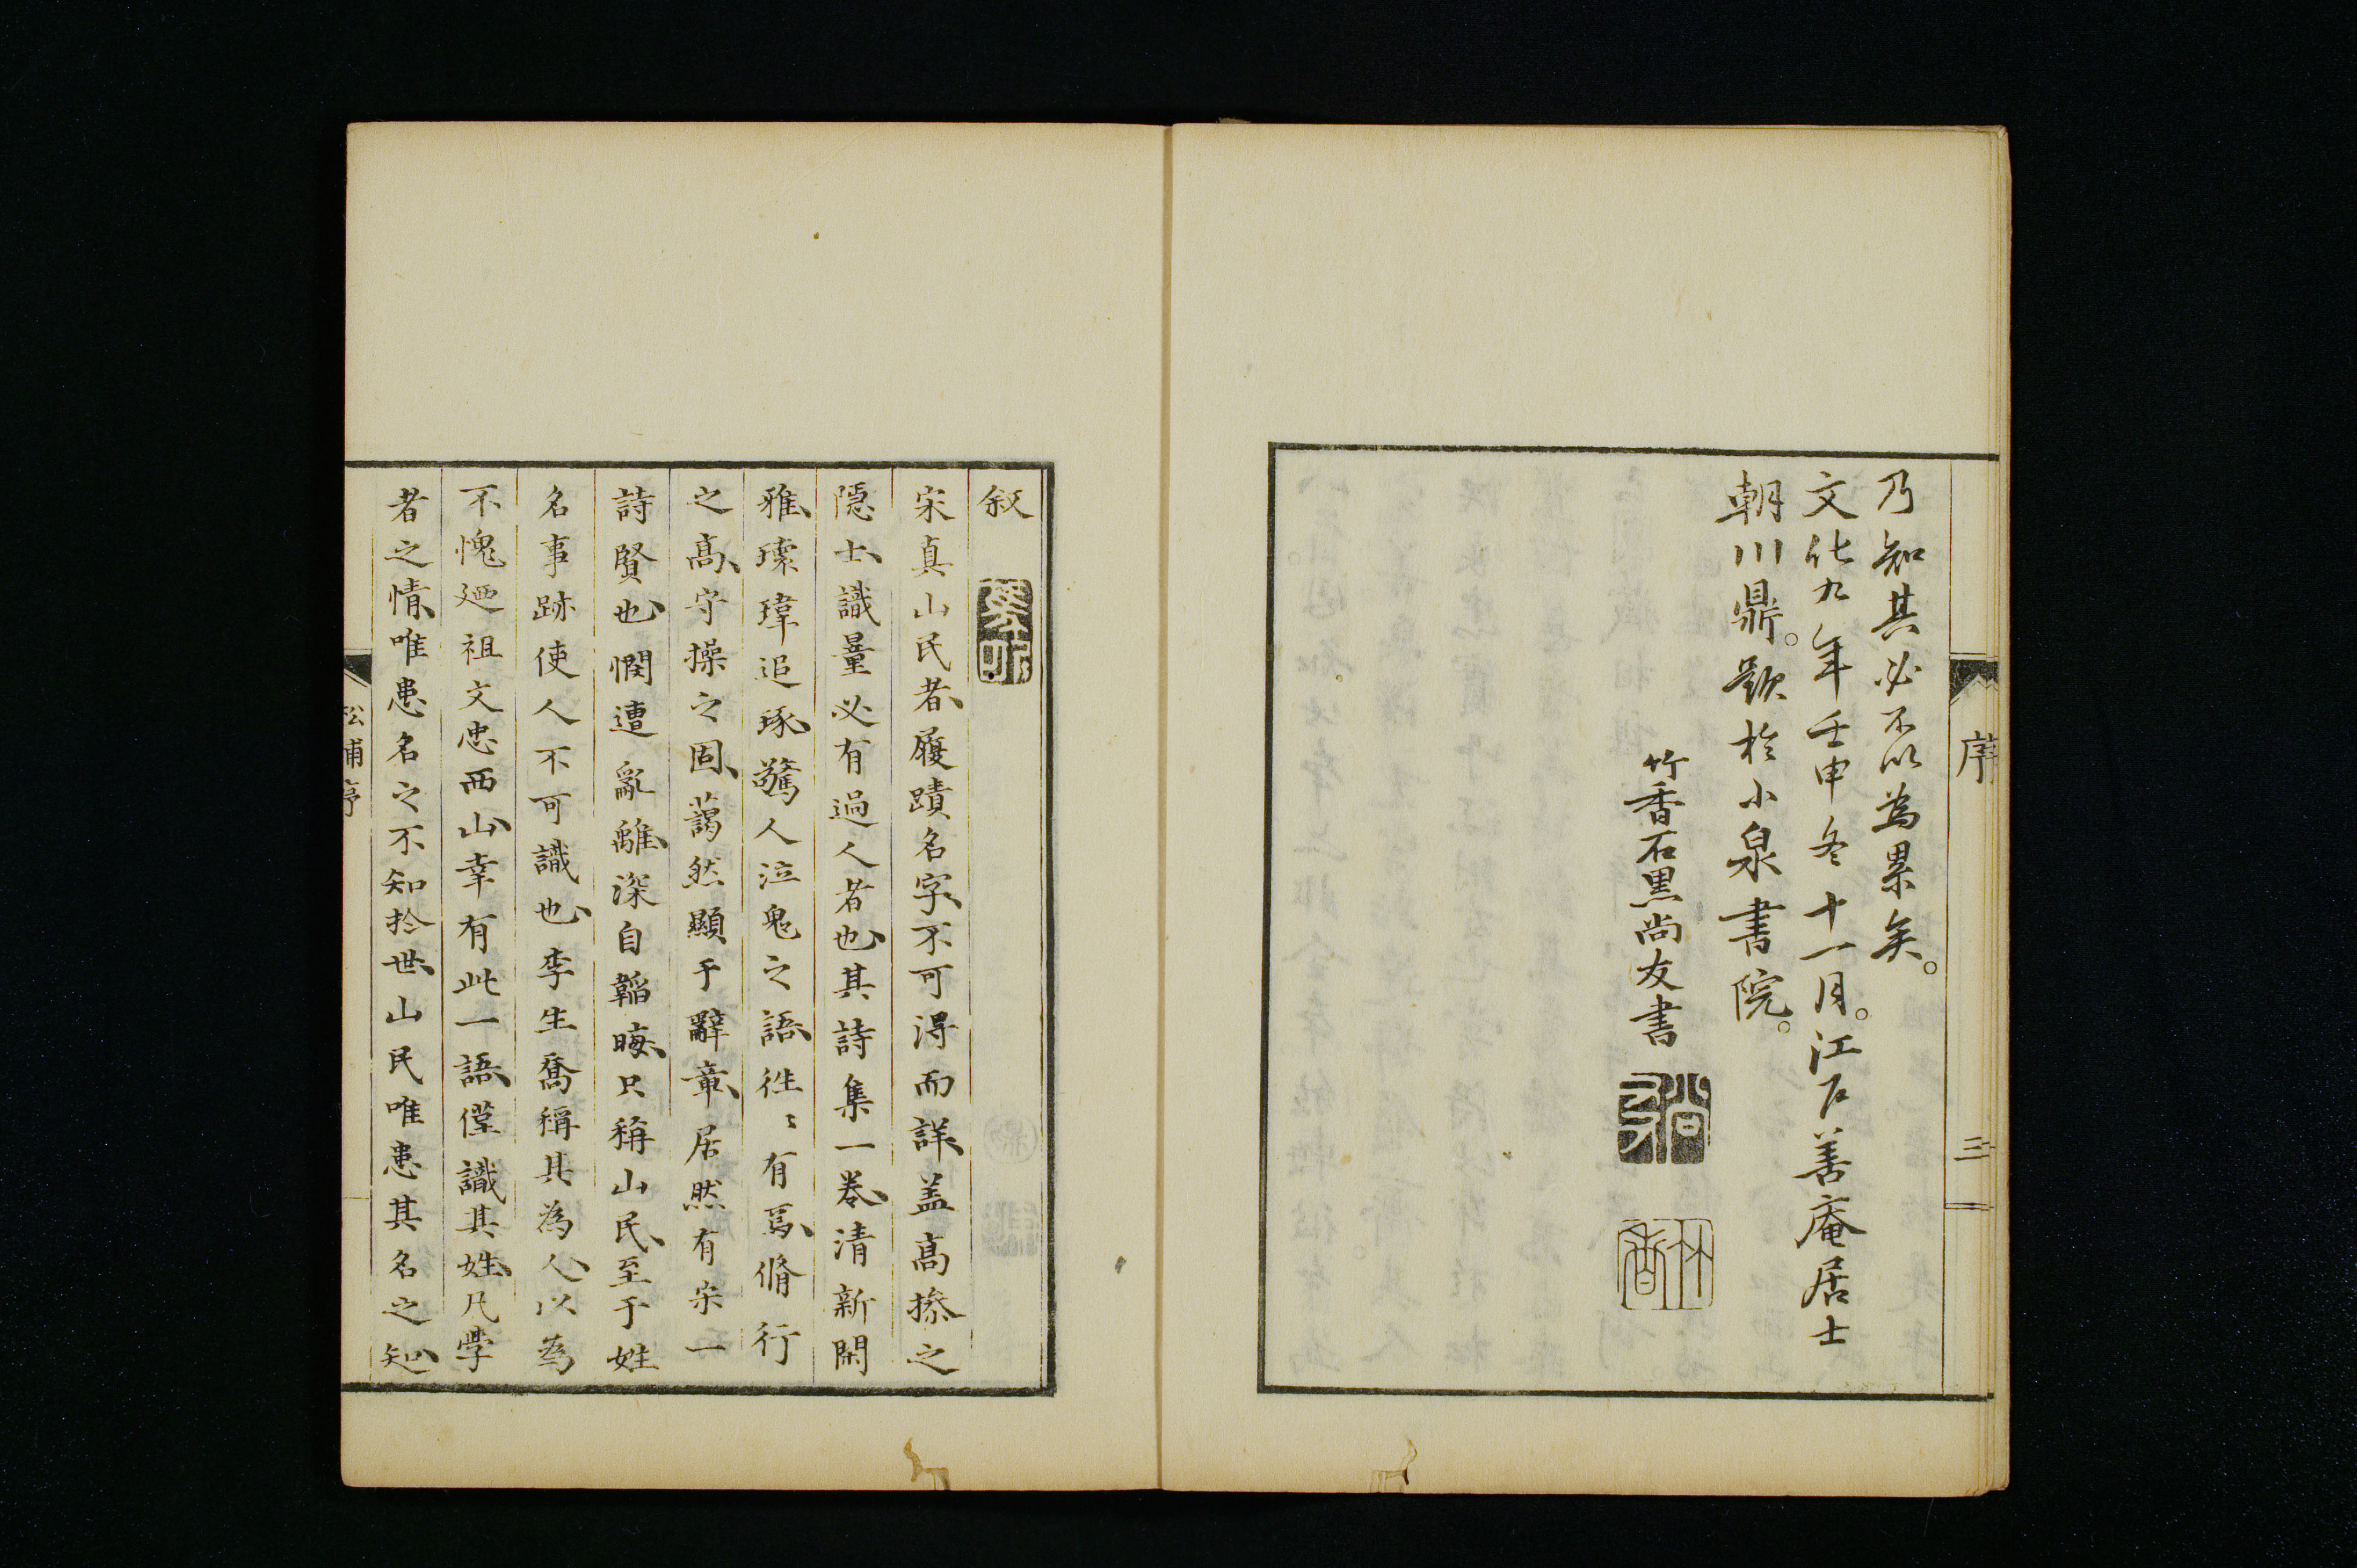 序
三
乃知其必不以為累矣。
文化九年壬申冬十一月。江戶善庵居士
朝川鼎。題於小泉書院。
竹香石黒尚友書
尚友
竹香
叙
宋真山民者、履蹟名字、不可得而詳、盖高搽之
隱士、識量必有過人者也、其詩集一巻、清新閑
雅、瓌瑋追琢、驚人泣鬼之語、徃〻有焉、脩行
之高、守操之固、藹然顯于辭章、居然有宋一
詩賢也、憫遭亂離、深自韜晦、只稱山民、至于姓
名事跡使人不可識也、李生喬稱其為人、以為
不愧廼祖文忠西山、幸有此一語、僅識其姓、凡學
者之情、唯患名之不知於世、山民唯患其名之知、
松浦亭